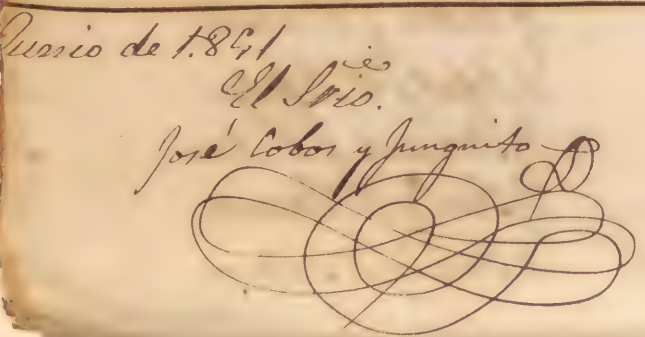 Junio de 1.851
El Srio.
José Cobos y Junguito